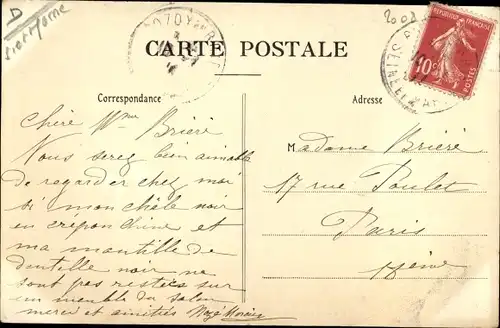 D
Seine Marne
CARTE POSTALE
Correspondance
Adresse
REPUBLIQUE FRANÇAISE
10c
POSTES
Chère Mme Brière
Vous serez bien aimable
de regarder chez moi
si mon châle noir
en crépon Chine et
ma mantille de
dentelle noir ne
sont pas restés sur
un meuble du salon
merci et amitiés
Madame Brière
17 rue Poulet
Paris
Seine